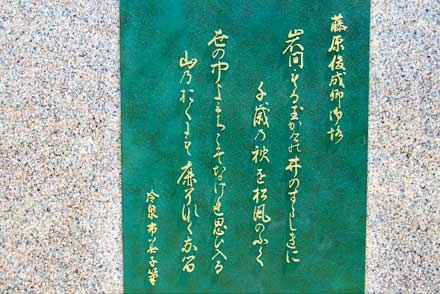 藤原俊成卿御詠
岩間もる玉かげの井のすずしきに
千歳乃秋を松風のふく
世の中よみちこそなけれ思ひ入る
山乃おくにも鹿ぞなくなる
冷泉布美子筆